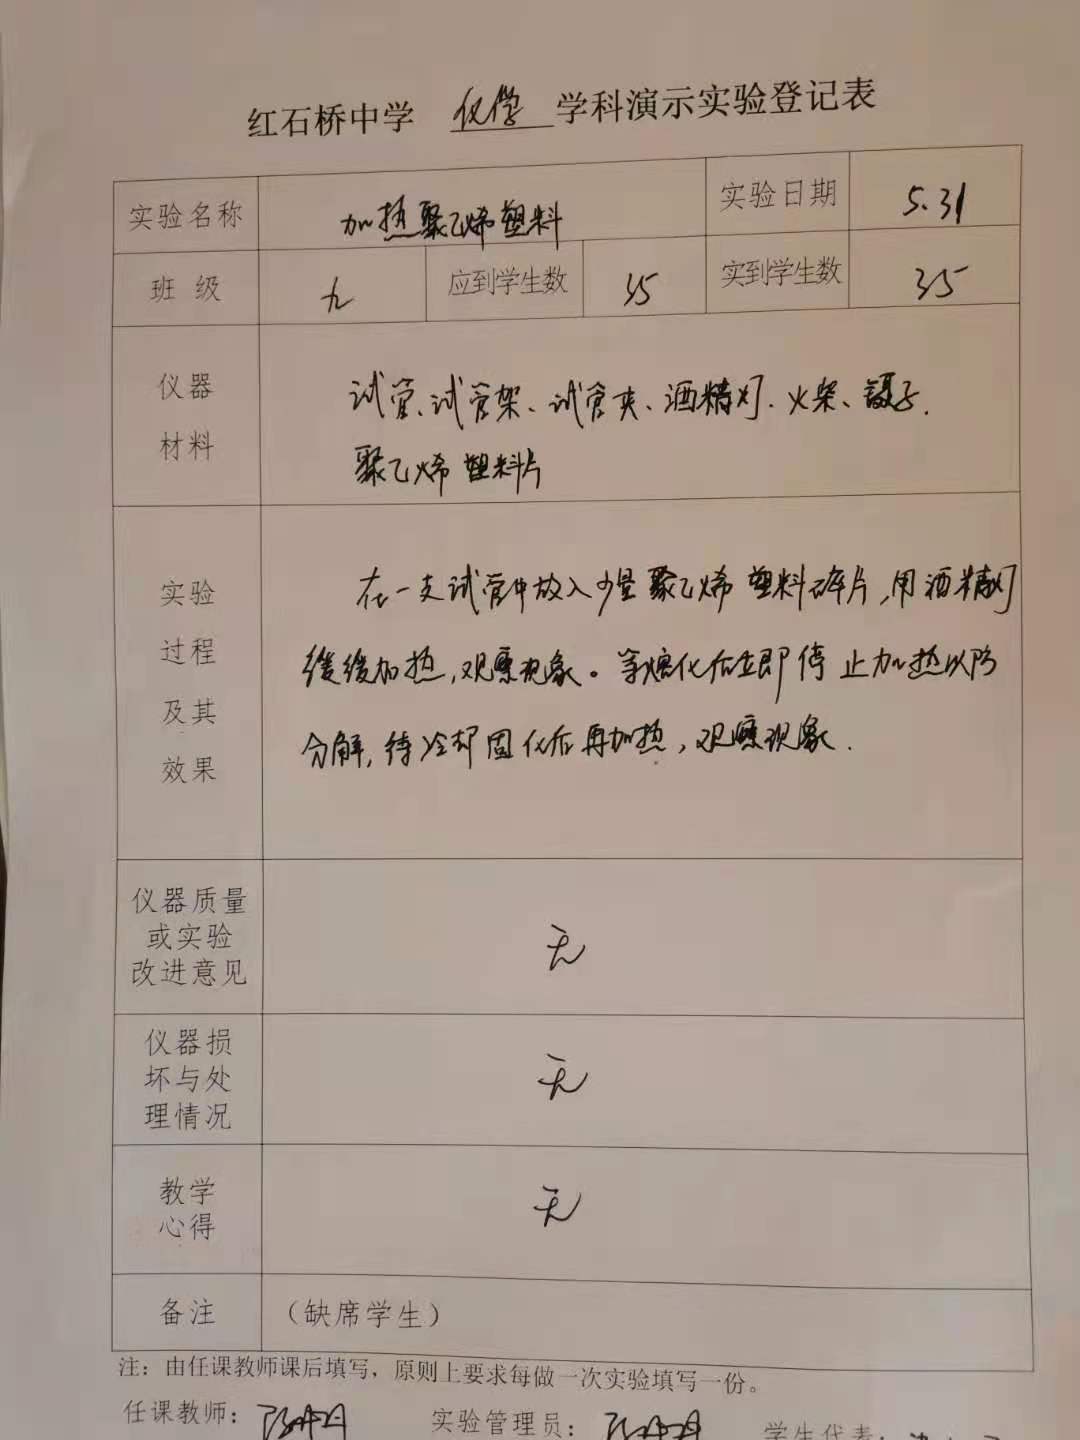 红石桥中学 化学 学科演示实验登记表
实验名称 加热聚乙烯塑料 实验日期 5.31
班 级 九 应到学生数 35 实到学生数 35
仪器
材料
试管、试管架、试管夹、酒精灯、火柴、镊子、
聚乙烯塑料片
实验
过程
及其
效果
在一支试管中放入少量聚乙烯塑料碎片,用酒精灯
缓缓加热,观察现象。等熔化后立即停止加热以防
分解,待冷却固化后再加热,观察现象.
仪器质量
或实验
改进意见
无
仪器损
坏与处
理情况
无
教学
心得
无
备注 (缺席学生)
注：由任课教师课后填写，原则上要求每做一次实验填写一份。
任课教师： 实验管理员： 学生代表：